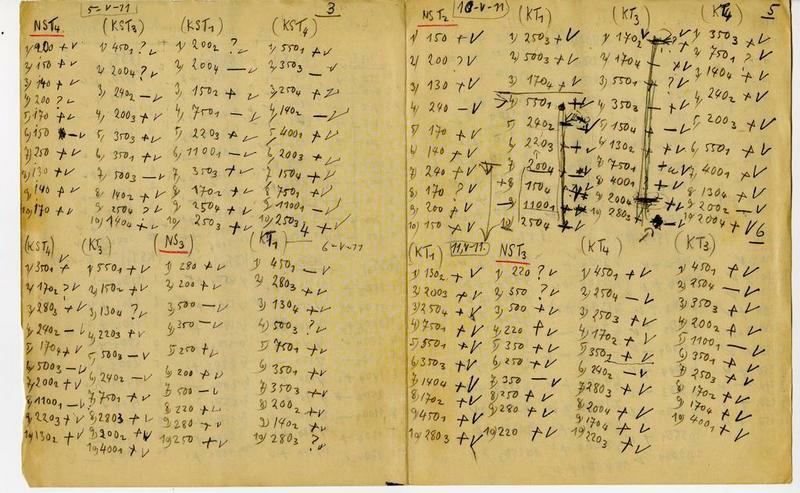 5-V-11 3
NST4 (KST3) (KST1) (KST4)
2) 150 + v
3) 140 + v
4) 200 ? v
5) 170 + v
7) 250 + v
8) 130 + v
9) 140 + v
10) 170 + v
1) 4501 ? v
2) 2004 ? v
3) 2402 – v
4) 2003 + v
5) 3503 + v
6) 3501 + v
7) 5003 – v
8) 1402 + v
9) 2504 ? v
10) 1404 + v
1) 2002 ? v
2) 2004 – v
3) 1502 + v
4) 7501 – v
5) 2203 + v
6) 11001 – v
7) 3503 + v
8) 1702 + v
9) 2504 + v
10) 2503 + v
1) 5501 + v
2) 3503 – v
3) 2504 + v
4) 1402 – v
5) 4001 + v
6) 2003 + v
7) 1504 + v
8) 7501 + v
9) 11001 – v
10) 2503 + v
4
6-V-11
(KST4) (KT3) NS3 (KT1)
1) 3501 + v
2) 1702 ? v
3) 2803 + v
4) 2402 – v
5) 1704 + v
6) 5003 – v
7) 2002 + v
8) 11001 – v
9) 2203 + v
10) 1302 + v
1) 5501 + v
2) 1502 + v
3) 1304 ? v
4) 2203 + v
5) 5003 – v
6) 2402 – v
7) 7501 + v
8) 2803 + v
9) 2002 + v
10) 4001 + v
1) 280 + v
2) 200 + v
3) 500 – v
4) 350 – v
5) 250 + v
6) 200 + v
7) 500 – v
8) 220 + v
9) 280 + v
10) 250 + v
1) 4501 – v
2) 2803 + v
3) 1304 + v
4) 5003 ? v
5) 7501 + v
6) 3501 + v
7) 3503 + v
8) 2002 + v
9) 1402 + v
10) 2803 ? v
10-V-11 5
NST2 (KT1) (KT3) (KT4)
1) 150 + v
2) 200 ? v
3) 130 + v
4) 240 – v
5) 170 + v
6) 140 + v
7) 240 + v
8) 170 ? v
9) 200 + v
10) 150 + v
1) 2503 + v
2) 5003 + v
3) 1704 + v
4) 5501 + v
5) 2402
6) 2203
7) 2004
8) 1504
9) 11001
10) 2504
1) 1702
2) 1704
3) 5501
4) 3503
5) 1504
6) 1302
7) 7501
8) 4001
9) 2004
10) 2803
1) 3503 + v
2) 7501 ? v
3) 1404 + v
4) 2202 + v
5) 2003 + v
6) 5501 + v
7) 4001 + v
8) 1304 + v
9) 2002 – v
10) 2004 + v
6
(KT1) 11-V-11. NST3 (KT4) (KT3)
1) 1302 + v
2) 2003 + v
3) 2504 + v
4) 7501 + v
5) 5501 + v
6) 3503 + v
7) 1404 + v
8) 1702 + v
9) 4501 + v
10) 2803 + v
1) 220 ? v
2) 350 ? v
3) 500 + v
4) 220 + v
5) 350 + v
6) 250 + v
7) 350 – v
8) 250 + v
9) 280 + v
10) 220 + v
1) 4501 + v
2) 2504 – v
3) 2503 + v
4) 1702 + v
5) 3501 + v
6) 2402 – v
7) 2803 + v
8) 2004 + v
9) 1704 + v
10) 2203 + v
1) 4501 + v
2) 2504 – v
3) 3503 + v
4) 2002 + v
5) 11001 – v
6) 3501 + v
7) 2503 + v
8) 1702 + v
9) 1704 + v
10) 4001 + v